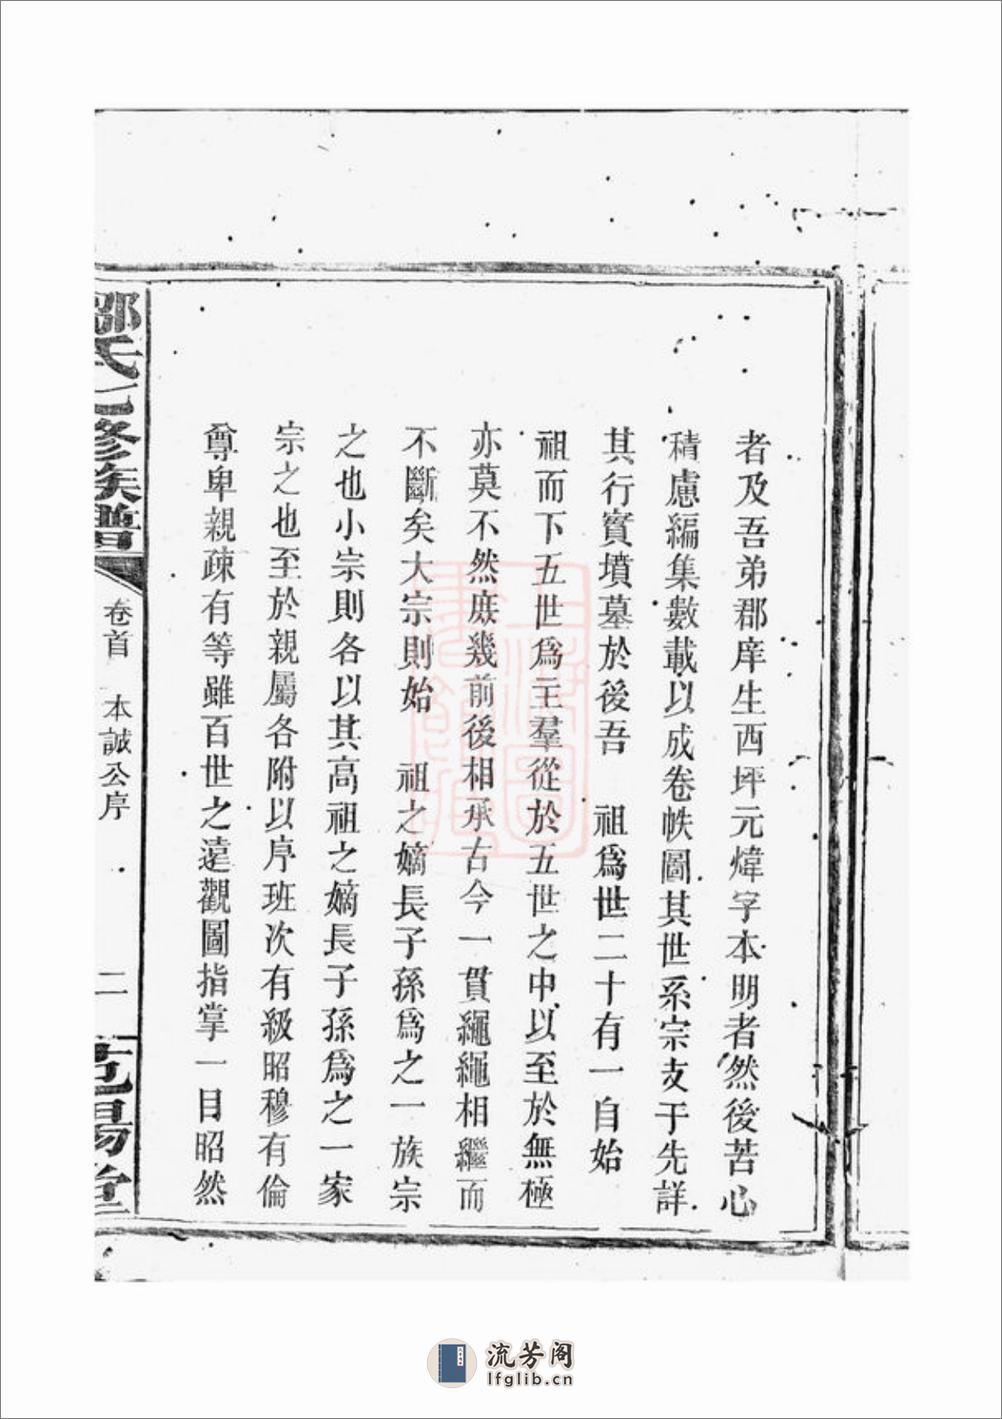 者及吾弟郡庠生西坪元煒字本明者然後苦心
積慮編集數載以成卷帙圖其世系宗支于先詳
其行實墳墓於後吾　祖爲世二十有一自始
祖而下五世爲主羣從於五世之中以至於無極
亦莫不然庶幾前後相承古今一貫繩繩相繼而
不斷矣大宗則始　祖之嫡長子孫爲之一族宗
之也小宗則各以其高祖之嫡長子孫爲之一家
宗之也至於親屬各附以序班次有級昭穆有倫
尊卑親疎有等雖百世之遠觀圖指掌一目昭然
氏七修族譜
卷首　本誠公序
二
流芳阁
lfglib.cn